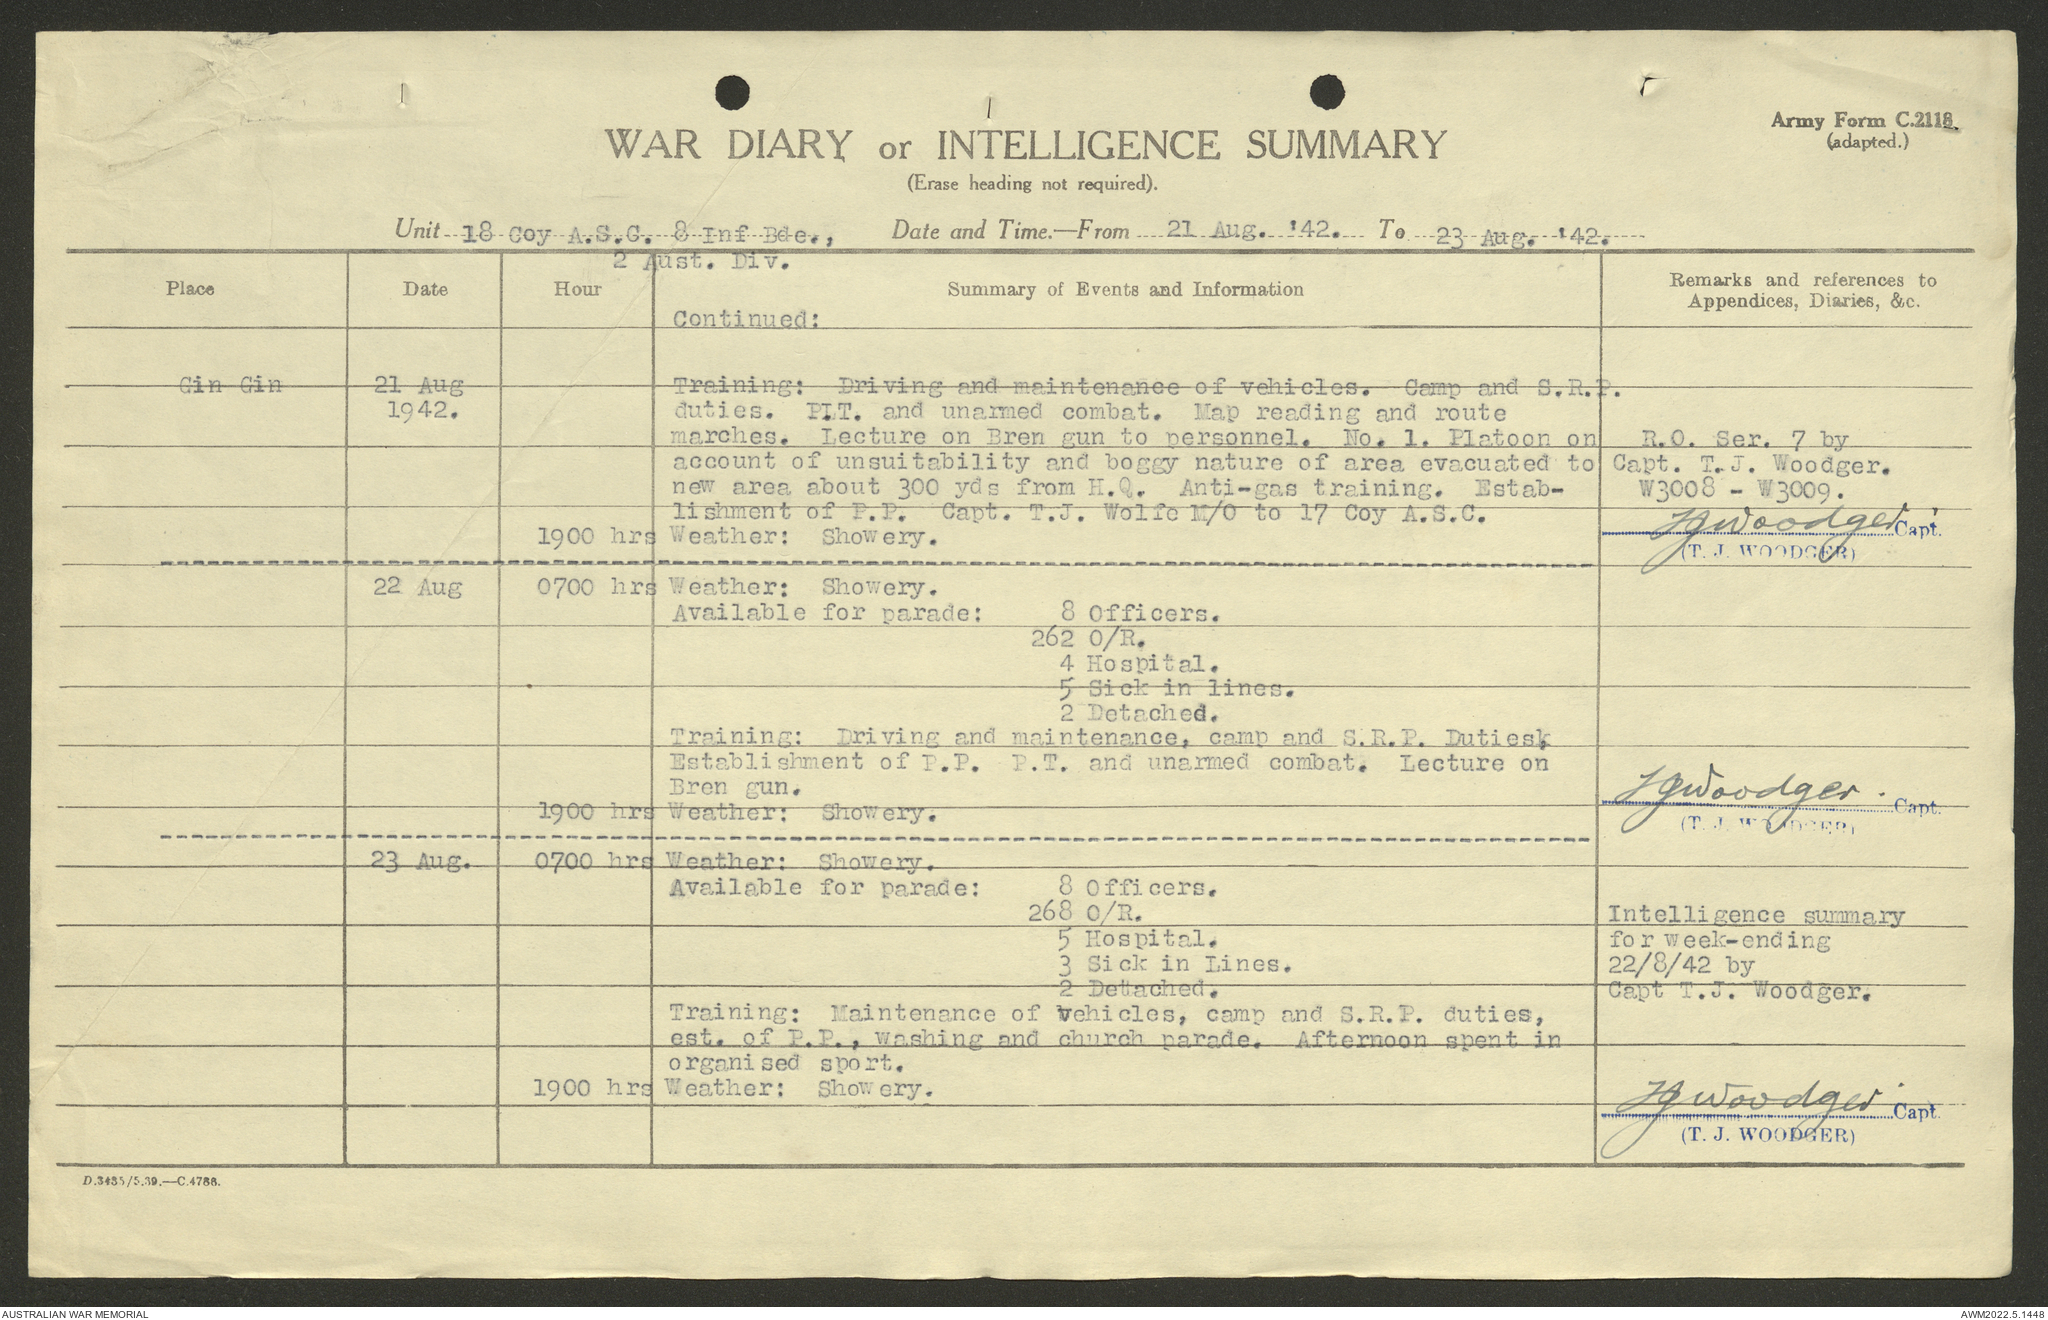 Army Form C.2118.
(adapted.)
WAR DIARY or INTELLIGENCE SUMMARY
(Erase heading not required).
Unit 18 Coy A.S.C. 8 Inf Bde., Date and Time.—From 21 Aug. '42. To 23 Aug. '42.
2 Aust. Div.
Place Date Hour Summary of Events and Information Remarks and references to
Appendices, Diaries, &c.
Continued:
Gin Gin 21 Aug Training: Driving and maintenance of vehicles. Camp and S.R.P.
1942. duties. P.T. and unarmed combat. Map reading and route
marches. Lecture on Bren gun to personnel. No. 1. Platoon on R.O. Ser. 7 by
account of unsuitability and boggy nature of area evacuated to Capt. T.J. Woodger.
new area about 300 yds from H.Q. Anti-gas training. Estab- W3008 - W3009.
lishment of P.P. Capt. T.J. Wolfe M/O to 17 Coy A.S.C.
1900 hrs Weather: Showery. TJWoodger Capt.
(T. J. WOODGER)
22 Aug 0700 hrs Weather: Showery.
Available for parade: 8 Officers.
262 O/R.
4 Hospital.
5 Sick in lines.
2 Detached.
Training: Driving and maintenance, camp and S.R.P. Duties,
Establishment of P.P. P.T. and unarmed combat. Lecture on
Bren gun. TJWoodger.
1900 hrs Weather: Showery. Capt.
(T. J. WOODGER)
23 Aug. 0700 hrs Weather: Showery.
Available for parade: 8 Officers.
268 O/R. Intelligence summary
5 Hospital. for week-ending
3 Sick in Lines. 22/8/42 by
2 Detached. Capt T.J. Woodger.
Training: Maintenance of vehicles, camp and S.R.P. duties,
est. of P.P., washing and church parade. Afternoon spent in
organised sport.
1900 hrs Weather: Showery. TJWoodger
Capt.
(T. J. WOODGER)
D.3435/5.39.—C.4788.
AUSTRALIAN WAR MEMORIAL AWM2022.5.1448